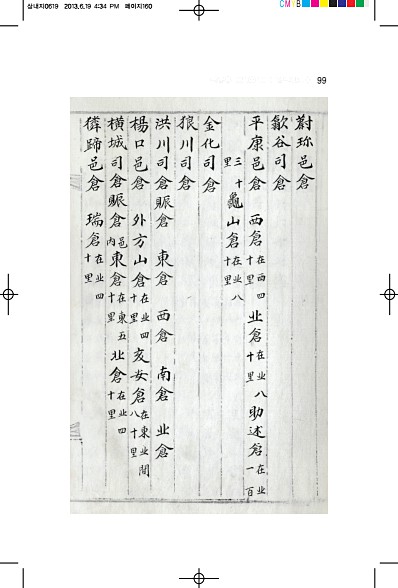 삼내지0619 2013.6.19 4:34 PM 페이지160
CMYB
99
蔚珎邑倉
歙谷司倉
平康邑倉 西倉在西四十里 北倉在北八十里 助述倉在北一百
三十里 龜山倉在北八十里
金化司倉
狼川司倉
洪川司倉賑倉 東倉 西倉 南倉 北倉
楊口邑倉 外方山倉在北四十里 亥安倉在東北間八十里
橫城司倉賑倉邑內 東倉在東五十里 北倉在北四十里
蹄邑倉 瑞倉在北四十里